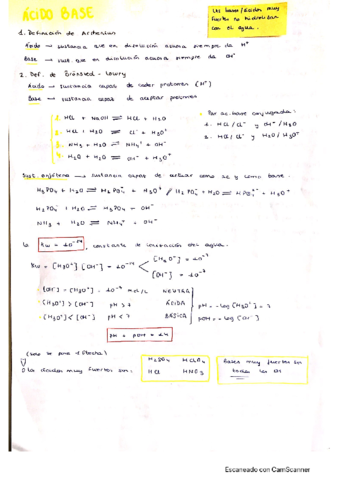 ÁCIDO BASE
Las bases/ácidos muy
fuertes no hidrolizan
con el agua.
1. Definición de Arrhenius
Ácido → sustancia que en disolución acuosa siempre da H⁺
Base → sust. que en disolución acuosa siempre da OH⁻
2. Def. de Brönsted - Lowry
Ácido → sustancia capaz de ceder protones (H⁺)
Base → sustancia capaz de aceptar protones
1. HCl + NaOH ⇌ NaCl + H₂O
2. HCl + H₂O ⇌ Cl⁻ + H₃O⁺
3. NH₃ + H₂O ⇌ NH₄⁺ + OH⁻
4. H₂O + H₂O ⇌ OH⁻ + H₃O⁺
• Par ácido base conjugado:
1. HCl/Cl⁻ y OH⁻/H₂O
2. HCl/Cl⁻ y H₂O/H₃O⁺
Sust. anfótera → sustancia capaz de actuar como ac y como base.
H₃PO₄ + H₂O ⇌ H₂PO₄⁻ + H₃O⁺ // H₂PO₄⁻ + H₂O ⇌ HPO₄²⁻ + H₃O⁺
H₂PO₄⁻ + H₂O ⇌ H₃PO₄ + OH⁻
NH₃ + H₂O ⇌ NH₄⁺ + OH⁻
Kw = 10⁻¹⁴, constante de ionización del agua.
Kw = [H₃O⁺] [OH⁻] = 10⁻¹⁴ < [H₃O⁺] = 10⁻⁷
[OH⁻] = 10⁻⁷
• [OH⁻] = [H₃O⁺] = 10⁻⁷ mol/L NEUTRA
• [H₃O⁺] > [OH⁻] pH > 7 ÁCIDA
• [H₃O⁺] < [OH⁻] pH < 7 BÁSICA
pH = -log [H₃O⁺] = 7
pOH = -log [OH⁻]
pH + pOH = 14
(solo se pone 1 flecha)
Los ácidos muy fuertes son:
H₂SO₄ HClO₄
HCl HNO₃
Bases muy fuertes son
todas las OH
Escaneado con CamScanner